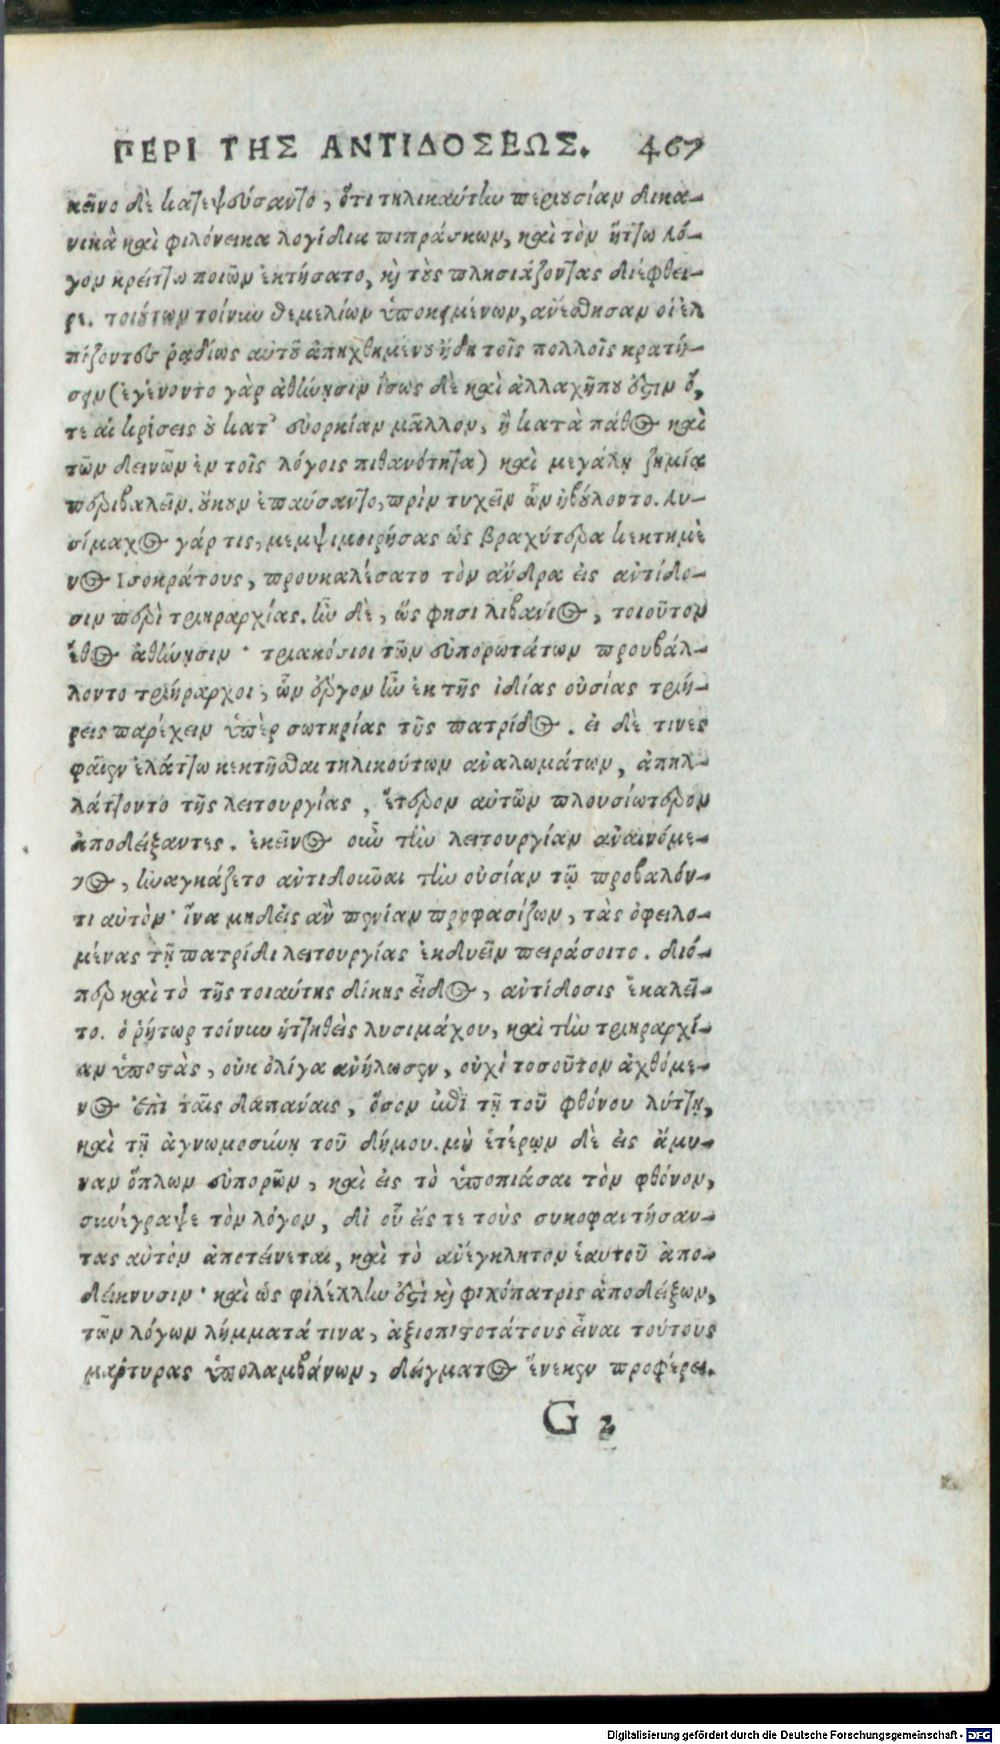 ΠΕΡΙ ΤΗΣ ΑΝΤΙΔΟΣΕΩΣ. 467
κεῖνο δὲ κατεψεύσαντο, ὅτι τηλικαύτην περιουσίαν δικα-
νικὰ καὶ φιλόνεικα λογίδια πιπράσκων, καὶ τὸν ἥττω λό-
γον κρείττω ποιῶν ἐκτήσατο, καὶ τοὺς πλησιάζοντας διέφθει-
ρε. τοιούτων τοίνυν θεμελίων ὑποκειμένων, ἀνέστησαν οἱ ἐλ
πίζοντες ῥᾳδίως αὐτοῦ ἀπηχθημένου ἤδη τοῖς πολλοῖς κρατή-
σειν (ἐγένοντο γὰρ ἀθήνησιν ἴσως δὲ καὶ ἀλλαχῆπου ἔστιν ὅ,
τε αἱ κρίσεις οὐ κατ' εὐορκίαν μᾶλλον, ἢ κατὰ πάθος καὶ
τῶν δεινῶν ἐν τοῖς λόγοις πιθανότητα) καὶ μεγάλῃ ζημίᾳ
περιβαλεῖν. οὔκουν ἐπαύσαντο, πρὶν τυχεῖν ὧν ἠβούλοντο. λυ-
σίμαχος γάρ τις, μεμψιμοιρήσας ὡς βραχύτερα κεκτημέ
νος Ισοκράτους, προυκαλέσατο τὸν ἄνδρα εἰς ἀντίδο-
σιν περὶ τριηραρχίας. ἦν δὲ, ὥς φησι λιβάνιος, τοιοῦτον
ἔθος ἀθήνησιν· τριακόσιοι τῶν εὐπορωτάτων προυβάλ-
λοντο τριήραρχοι, ὧν ἔργον ἦν ἐκ τῆς ἰδίας οὐσίας τριή-
ρεις παρέχειν ὑπὲρ σωτηρίας τῆς πατρίδος. εἰ δὲ τινες
φαῖεν ἐλάττω κεκτῆσθαι τηλικούτων ἀναλωμάτων, ἀπηλ-
λάττοντο τῆς λειτουργίας, ἕτερον αὐτῶν πλουσίωτερον
ἀποδείξαντες. ἐκεῖνος οὖν τὴν λειτουργίαν ἀναινόμε-
νος, ἠναγκάζετο ἀντιδοῦναι τὴν οὐσίαν τῷ προβαλόν-
τι αὐτὸν· ἵνα μηδεὶς ἂν πενίαν προφασίζων, τὰς ὀφειλο-
μένας τῇ πατρίδι λειτουργίας ἐκδυεῖν πειράσοιτο. διό-
περ καὶ τὸ τῆς τοιαύτης δίκης εἶδος, ἀντίδοσις ἐκαλεῖ-
το. ὁ ῥήτωρ τοίνυν ἡττηθεὶς λυσιμάχου, καὶ τὴν τριηραρχί-
αν ὑποστὰς, οὐκ ὀλίγα ἀνήλωσεν, οὐχὶ τοσοῦτον ἀχθόμε-
νος ἐπὶ ταῖς δαπάναις, ὅσον ἐπὶ τῇ τοῦ φθόνου λύττῃ,
καὶ τῇ ἀγνωμοσύνῃ τοῦ δήμου. μὴ ἑτέρων δὲ εἰς ἄμυ-
ναν ὅπλων εὐπορῶν, καὶ εἰς τὸ ὑποπιάσαι τὸν φθόνον,
συνέγραψε τὸν λόγον, δι οὗ εἴς τε τοὺς συκοφαντήσαν-
τας αὐτὸν ἀποτείνεται, καὶ τὸ ἀνέγκλητον ἑαυτοῦ ἀπο-
δείκνυσιν· καὶ ὡς φιλέλλην ἐστὶ καὶ φιλόπατρις ἀποδείξων,
τῶν λόγων λήμματά τινα, ἀξιοπιστοτάτους εἶναι τούτους
μάρτυρας ὑπολαμβάνων, δείγματος ἕνεκεν προφέρει.
G 2
Digitalisierung gefördert durch die Deutsche Forschungsgemeinschaft - DFG